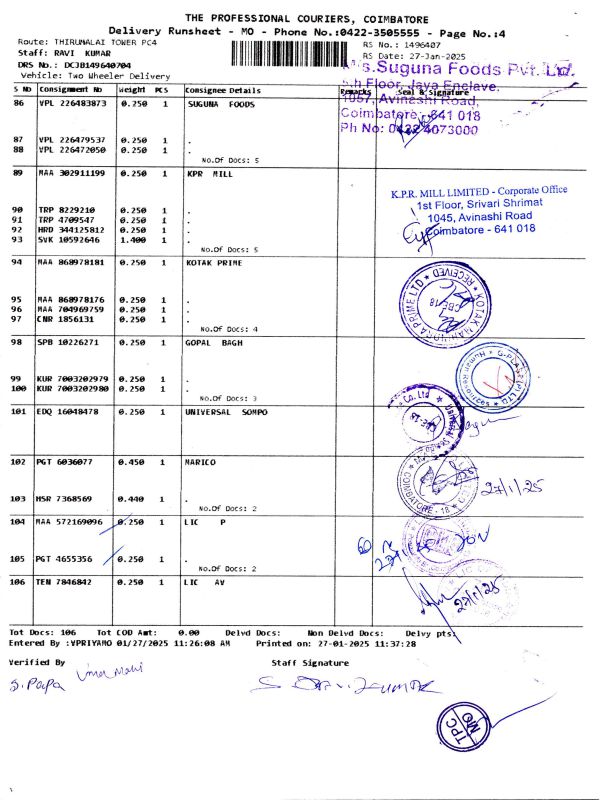 THE PROFESSIONAL COURIERS, COIMBATORE
Delivery Runsheet - MO - Phone No.:0422-3505555 - Page No.:4
Route: THIRUMALAI TOWER PC4
RS No.: 1496407
Staff: RAVI KUMAR
RS Date: 27-Jan-2025
DRS No.: DCJB149640704
Vehicle: Two Wheeler Delivery
s.Suguna Foods Pvt. Ltd.
5th Floor, Jaya Enclave,
1057, Avinashi Road,
Coimbatore - 641 018
Ph No: 0422 4073000
S No Consignment No Weight PCS Consignee Details Remarks Seal & Signature
86 VPL 226483873 0.250 1 SUGUNA FOODS
87 VPL 226479537 0.250 1 .
88 VPL 226472050 0.250 1 .
No.Of Docs: 5
89 MAA 302911199 0.250 1 KPR MILL
K.P.R. MILL LIMITED - Corporate Office
1st Floor, Srivari Shrimat
1045, Avinashi Road
Coimbatore - 641 018
90 TRP 8229210 0.250 1 .
91 TRP 4709547 0.250 1 .
92 HRD 344125812 0.250 1 .
93 SVK 10592646 1.400 1 .
No.Of Docs: 5
94 MAA 868978181 0.250 1 KOTAK PRIME
KOTAK MAHINDRA PRIME LTD
RECEIVED
CBE-18
95 MAA 868978176 0.250 1 .
96 MAA 704969759 0.250 1 .
97 CNR 1856131 0.250 1 .
No.Of Docs: 4
98 SPB 10226271 0.250 1 GOPAL BAGH
G-PLAST (P) LTD
Human Resources
99 KUR 7003202979 0.250 1 .
100 KUR 7003202980 0.250 1 .
No.Of Docs: 3
101 EDQ 16048478 0.250 1 UNIVERSAL SOMPO
Co. Ltd
102 PGT 6036077 0.450 1 MARICO
COIMBATORE - 18
27/1/25
103 HSR 7368569 0.440 1 .
No.Of Docs: 2
104 MAA 572169096 0.250 1 LIC P
105 PGT 4655356 0.250 1 .
No.Of Docs: 2
106 TEN 7846842 0.250 1 LIC AV
27/1/25
Tot Docs: 106 Tot COD Amt: 0.00 Delvd Docs: Non Delvd Docs: Delvy pts:
Entered By :VPRIYAMO 01/27/2025 11:26:08 AM Printed on: 27-01-2025 11:37:28
Verified By Staff Signature
S. Papa
TPC
MO